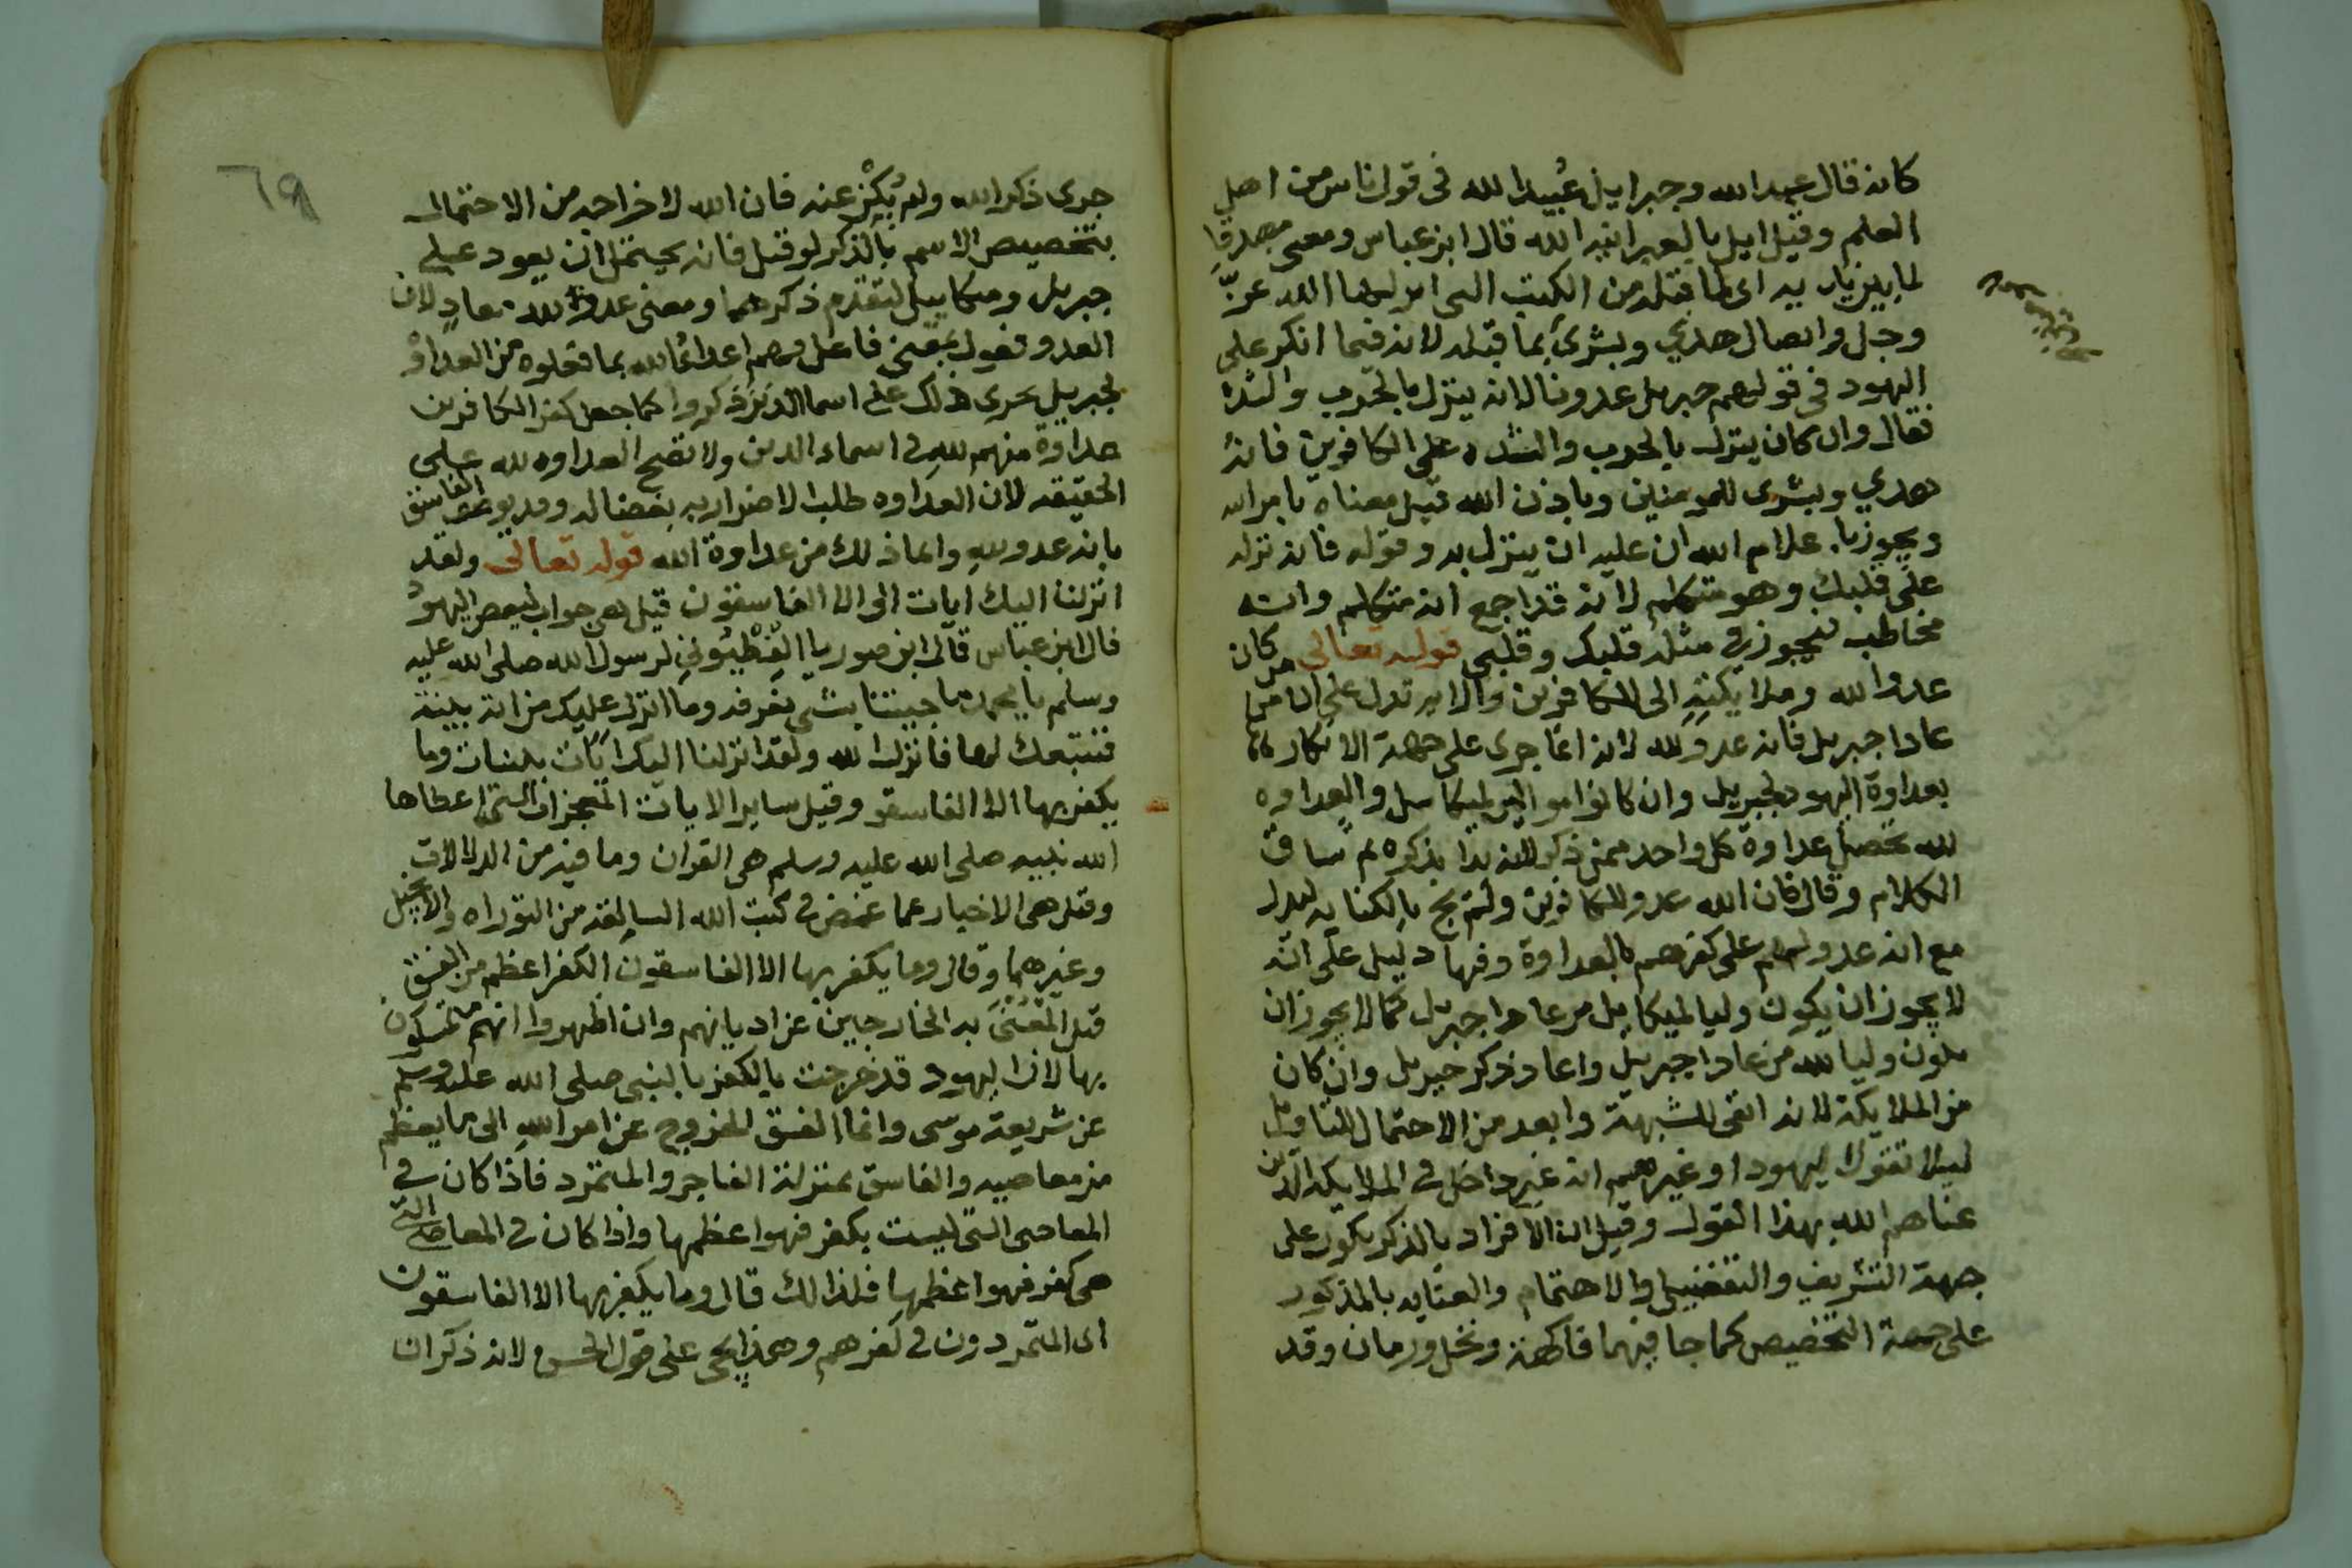 كانه قال عبد الله وجبراييل عُبيد الله فى قول ناس من اهل
العلم وقيل ايل بالعبرانيه الله قال ابن عباس ومعنى مصدقا
لما بين يديه اى لما قبله من الكتب التى انزلها الله عزّ
وجل واتصال هدي وبشرى بما قبله لانه فيما انكر على
اليهود فى قولهم جبريل عدونا لانه ينزل بالحرب والشده
فقال وان كان ينزل بالحرب والشده على الكافرين فانه
هدي وبشرى للمومنين وباذن الله قيل معناه بامر الله
ويجوز باعلام الله ان عليه ان ينزل به وقوله فانه نزله
على قلبك وهو متكلم لانه قد اجمع انه متكلم وانه
مخاطب فيجوز في مثله قلبك وقلبى قوله تعالى من كان
عدوا لله وملايكته الى الكافرين والايه تدل على ان من
عادا جبريل فانه عدو لله لانه انما جرى على جهة الانكار
بعداوة اليهود لجبريل وان كانوا موالين لميكاييل والعداوه
لله تحصيل عداوة كل واحد ممن ذكر لانه بدا بذكره ثم ساق
الكلام وقال فان الله عدو للكافرين ولم يج بالكنايه ليدل
مع انه عدو لهم على كفرهم بالعداوة وفيها دليل على انه
لا يجوز ان يكون وليا لميكاييل من عادا جبريل كما لا يجوز ان
يكون وليا لله من عادا جبريل واعاد ذكر جبريل وان كان
من الملايكة لانه انفى للشبهة وابعد من الاحتمال للتاويل
ليلا تقول اليهود او غيرهم انه غير داخل في الملايكه الذين
عناهم الله بهذا القول وقيل ان الافراد بالذكر يكون على
جهة التشريف والتفضيل والاهتمام والعنايه بالمذكور
على جهة التخصيص كما جا فيهما فاكهة ونخل ورمان وقد
٦٩
جرى ذكر الله ولم يُكْنَ عنه فان الله لاخراجه من الاحتمال
بتخصيص الاسم بالذكر لو قيل فانه يحتمل ان يعود على
جبريل وميكاييل لتقدم ذكرهما ومعنى عدو لله معادٍ لان
العدو فعول بمعنى فاعل وهم اعدا الله بما فعلوه من العداوة
لجبريل يجرى ذلك على اسما الذين ذكروا كما جعل كفر الكافرين
عداوة منهم لله في اسماء الدين ولا تصح العداوه لله على
الحقيقه لان العداوه طلب الاضرار به بغضا له وقد يوصف الفاسق
بانه عدو لله وانما ذلك من عداوة الله قوله تعالى ولقد
انزلنا اليك ايات الى الا الفاسقون قيل هى جواب لبعض اليهود
قال ابن عباس قال ابن صوريا الفِطْيُوني لرسول الله صلى الله عليه
وسلم يا محمد ما جيتنا بشى نعرفه وما انزل عليك من اية بينة
فنتبعك لها فانزل الله ولقد انزلنا اليك ايات بينات وما
يكفر بها الا الفاسقون وقيل ساير الايات المعجزات التى اعطاها
الله نبيه صلى الله عليه وسلم هى القران وما فيه من الدلالات
وقيل هى الاخبار عما غمض في كتب الله السالفة من التوراه والانجيل
وغيرهما وقال وما يكفر بها الا الفاسقون الكفر اعظم من الفسق
قيل المَعْنىَّ به الخارجين عن اديانهم وان اظهروا انهم متمسكون
بها لان اليهود قد خرجت بالكفر بالنبى صلى الله عليه وسلم
عن شريعة موسى وانما الفسق للخروج عن امر الله الى ما يعظم
من معاصيه والفاسق بمنزلة الفاجر والمتمرد فاذا كان في
المعاصى التى ليست بكفر فهو اعظمها واذا كان في المعاصى التي
هى كفر فهو اعظمها فلذلك قال وما يكفر بها الا الفاسقون
اى المتمردون في كفرهم وهذا يجى على قول الحسن لانه ذكر ان